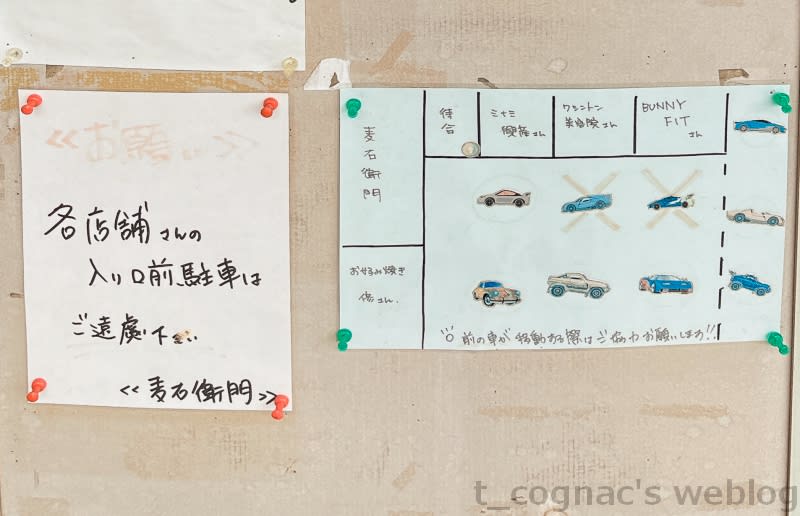 <<お願い>>
各店舗さんの
入り口前駐車は
ご遠慮下さい
<<麦右衛門>>
麦右衛門
待合
ミナミ
興産さん
ワシントン
美容院さん
BUNNY
FIT
さん
お好み焼き
偣さん、
前の車が移動する際はご協力お願いします!!
t_cognac's weblog